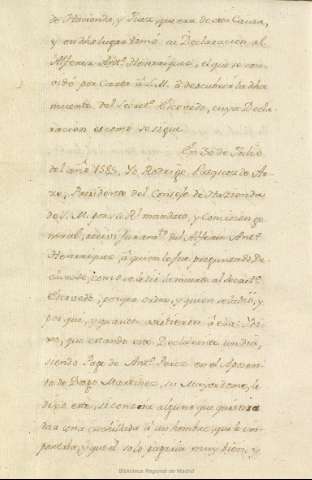 de Hacienda, y Juez, que era de esta Causa,
y en dho lugar tomó su Declaracion al
Alferez Ant.º Henrriquez, el que se com-
bidó por Carta á S. M. á descubrir la dha
muerte del Secret.º Escovedo, cuya Decla-
racion es como se sigue
En 30 de Julio
del año 1585, Yo Rodrigo Vazquez de Ar-
ze, Presidente del Consejo de Hazienda
de S. M. por su R.l mandato, y comission ge-
neral, recivi Juram.to del Alferez Ant.º
Henrriquez, á quien le fue preguntando De-
clarase, como se le dió la muerte al Secret.º
Escovedo, por que orden, y quien se la dió, y
por que, y quantos asistieron á ella: Di-
xo, que estando este Declarante un dia,
siendo Page de Ant.º Perez en el Aposen-
to de Diego Martinez, su Mayordomo, le
dijo este, si conocia alguno que quisiera
dar una cuchillada á un hombre, que le im-
portaba, y que él solo pagaria muy bien, y
Biblioteca Regional de Madrid